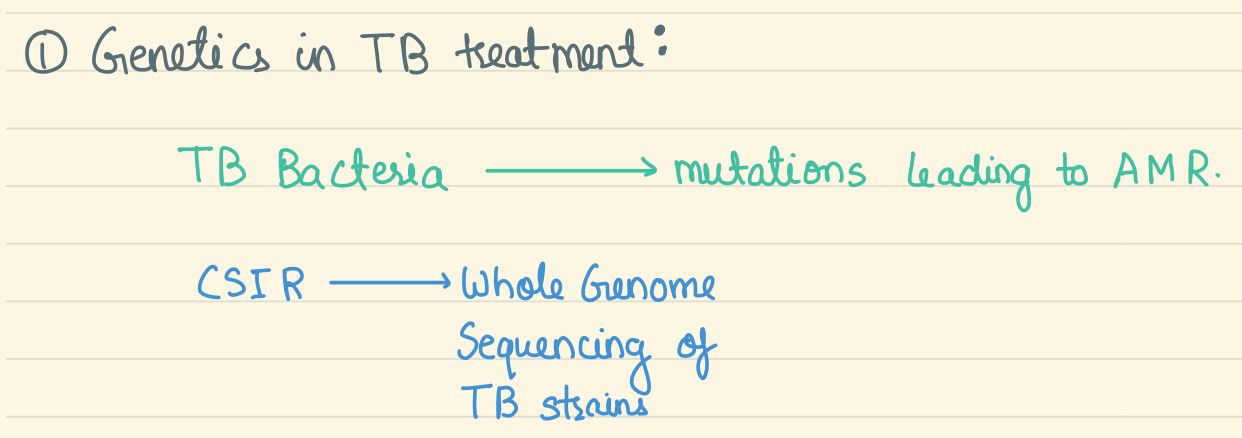 ① Genetics in TB treatment:
TB Bacteria → mutations leading to AMR.
CSIR → Whole Genome
Sequencing of
TB strains